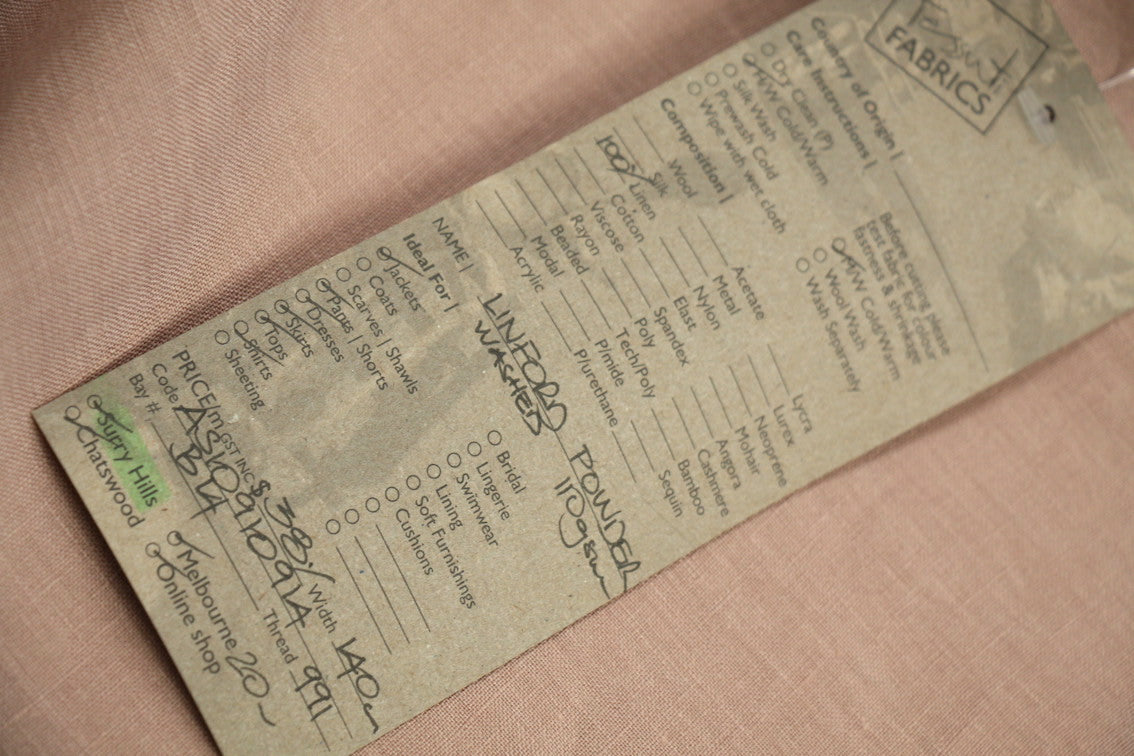 Tessuti
FABRICS
Country of Origin |
Care Instructions |
Dry Clean (P)
H/W Cold/Warm
Silk Wash
Prewash Cold
Wipe with wet cloth
Before cutting please
test fabric for colour
fastness & shrinkage
M/W Cold/Warm
Wool Wash
Wash Separately
Composition |
Wool
Silk
100% Linen
Cotton
Viscose
Rayon
Beaded
Modal
Acrylic
Acetate
Metal
Nylon
Elast
Spandex
Poly
Tech/Poly
P/mide
P/urethane
Lycra
Lurex
Neoprene
Mohair
Angora
Cashmere
Bamboo
Sequin
NAME | LINFORD POWDER
WASHED 170gsm
Ideal For |
Jackets
Coats
Scarves | Shawls
Pants | Shorts
Dresses
Skirts
Tops
Shirts
Sheeting
Bridal
Lingerie
Swimwear
Lining
Soft Furnishings
Cushions
PRICE/m GST INC $ 38/ Width 140cm
Code Thread 991
Bay # B14 20
Surry Hills Melbourne
Chatswood Online shop